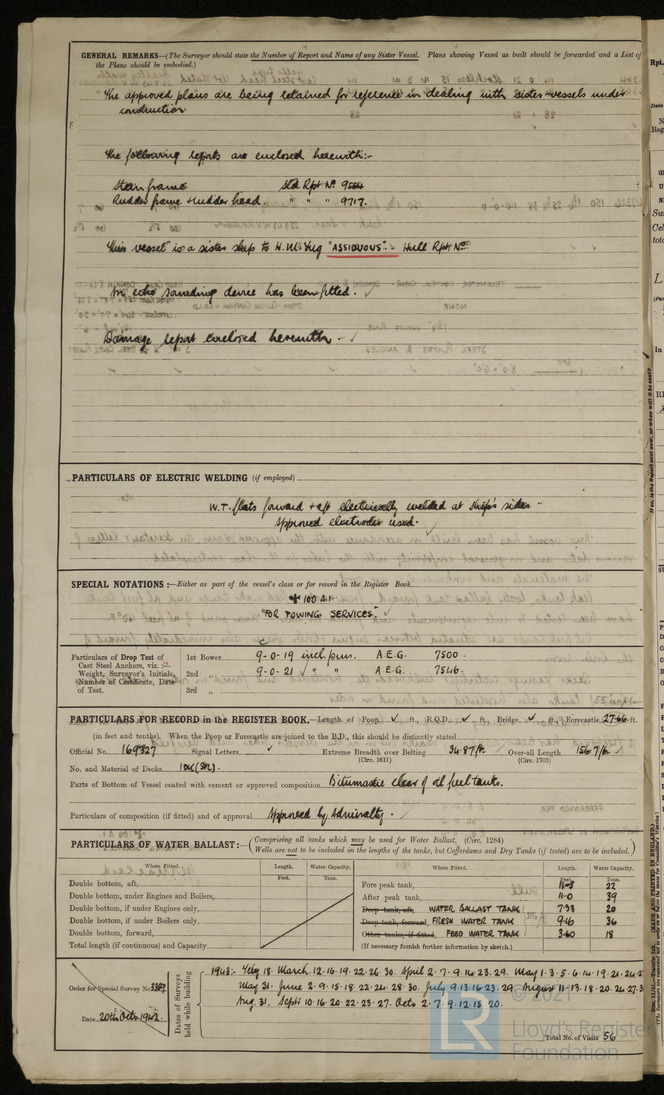 GENERAL REMARKS—(The Surveyor should state the Number of Report and Name of any Sister Vessel. Plans showing Vessel as built should be forwarded and a List of
the Plans should be embodied.)
The approved plans are being retained for reference in dealing with sister vessels under
construction
The following reports are enclosed herewith:-
Stern frame Sld Rpt No 9584
Rudder frame + rudder head. " " " 9717.
This vessel is a sister ship to H.M. Tug "ASSIDUOUS". - Hull Rpt No
An echo sounding device has been fitted. ✓
Damage report enclosed herewith. - ✓
PARTICULARS OF ELECTRIC WELDING (if employed)
W.T. flats forward + aft electrically welded at ship's sides -
Approved electrodes used. ✓
SPECIAL NOTATIONS:—Either as part of the vessel's class or for record in the Register Book
✠ 100 A.1.
"FOR TOWING SERVICES". ✓
Particulars of Drop Test of Cast Steel Anchors, viz.:—
Weight, Surveyor's Initials, Number of Certificate, Date of Test.
1st Bower 9-0-19 incl pins. A.E.G. 7500.
2nd " 9-0-21 ✓ " " A.E.G. 7546.
3rd "
PARTICULARS FOR RECORD in the REGISTER BOOK.—Length of Poop ✓ ft., R.Q.D. ✓ ft., Bridge ✓ ft., Forecastle 27.66 ft.
(in feet and tenths). When the Poop or Forecastle are joined to the B.D., this should be distinctly stated
Official No. 169327 Signal Letters ✓ Extreme Breadth over Belting 34.87 ft. ✓ Over-all Length 156.7 ft. ✓
(Circ. 1611) (Circ. 1703)
No. and Material of Decks 1DK (Stl)
Parts of Bottom of Vessel coated with cement or approved composition Bitumastic clear of oil fuel tanks.
Particulars of composition (if fitted) and of approval Approved by Admiralty. ✓
PARTICULARS OF WATER BALLAST:— (Comprising all tanks which may be used for Water Ballast. (Circ. 1284)
Wells are not to be included in the lengths of the tanks, but Cofferdams and Dry Tanks (if tested) are to be included.)
Where Fitted. Length. Water Capacity. Where Fitted. Length. Water Capacity.
Feet. Tons. Feet. Tons.
Double bottom, aft, Fore peak tank, 22
Double bottom, under Engines and Boilers, After peak tank, 11-0 39
Double bottom, if under Engines only, Deep tank, aft, WATER BALLAST TANK 7.33 20
Double bottom, if under Boilers only, Deep tank, forward, FRESH WATER TANK 9.16 36
Double bottom, forward, Other tanks, if fitted, FEED WATER TANK 3.60 18
Total length (if continuous) and Capacity (If necessary furnish further information by sketch.)
Order for Special Survey No. 3387
Date 20th Octr 1942
Dates of Surveys held while building
1943:- Feby 18. March 12.16.19.22.26.30. April 2.7.9.14.23.29. May 1.3.5.6.14.19.21.24.2
May 31. June 2.9.15.18.22.24.28.30. July 9.13.16.23.29. August 11.13.18.20.26.27.3
Aug. 31. Septr 10.16.20.22.23.27. Octr 2.7.9.12.15.20.
Total No. of Visits 56
© 2021
Lloyd's Register
Foundation
LR